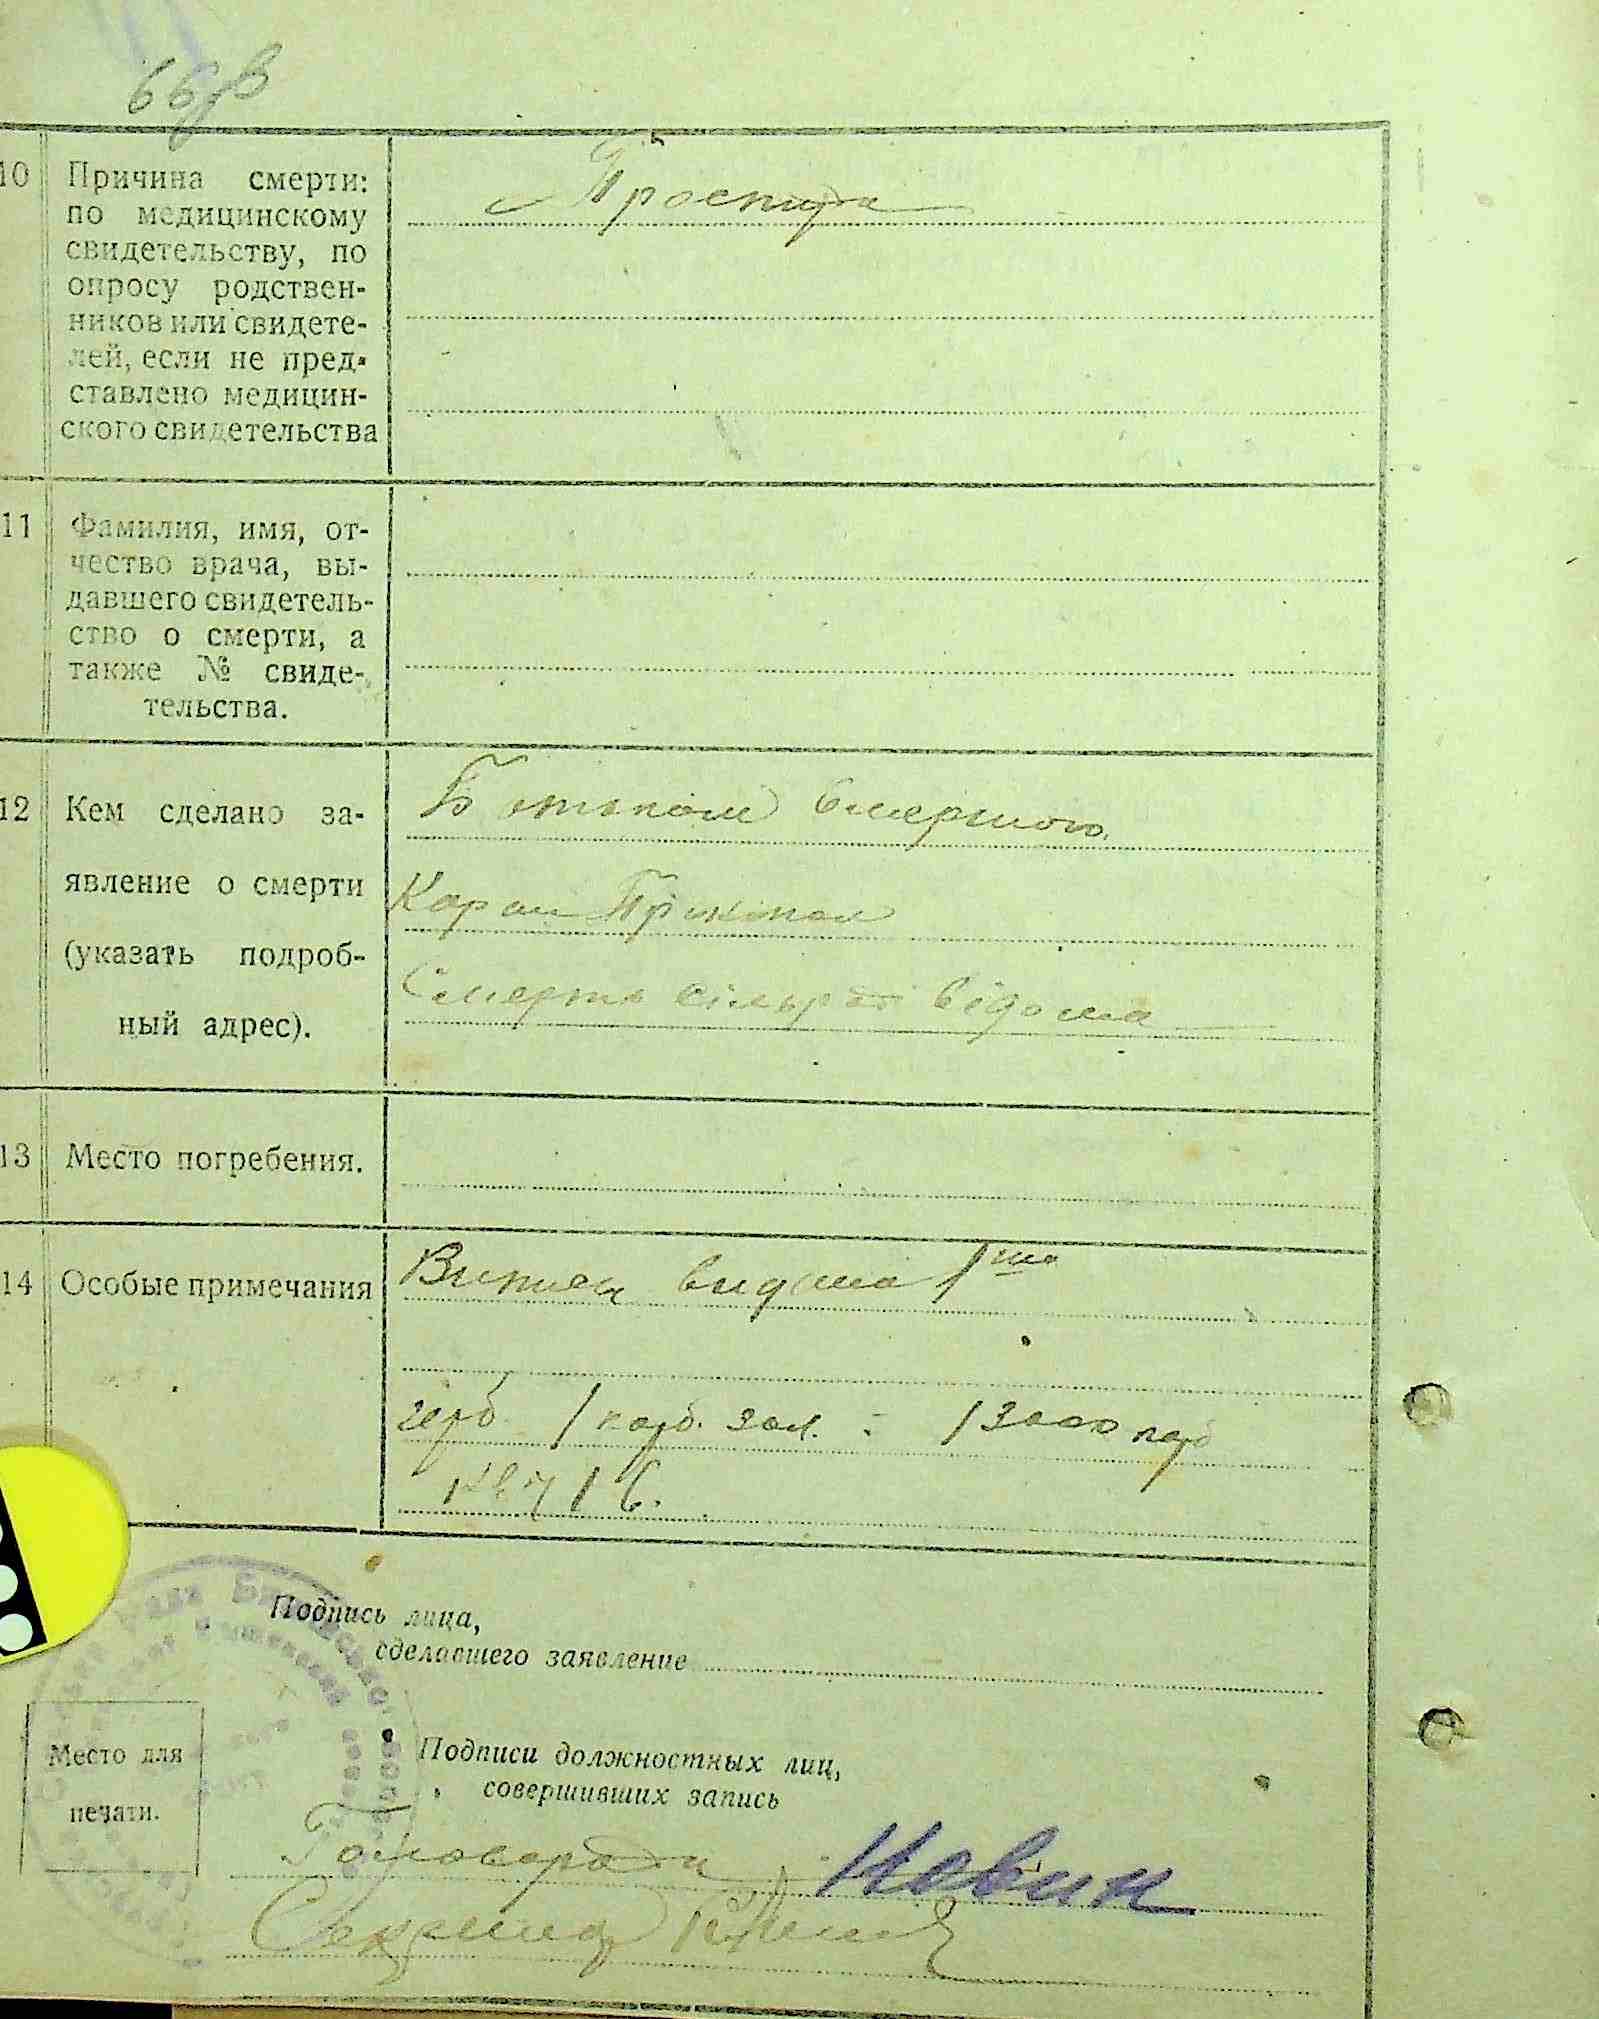 66
10 Причина смерти:
по медицинскому
свидетельству, по
опросу родствен-
ников или свидете-
лей, если не пред-
ставлено медицин-
ского свидетельства
Простуда
11 Фамилия, имя, от-
чество врача, вы-
давшего свидетель-
ство о смерти, а
также № свиде-
тельства.
12 Кем сделано за-
явление о смерти
(указать подроб-
ный адрес).
Батьком вмершого
Смерть сільраді відома
13 Место погребения.
14 Особые примечания
Випись видана 1
герб. 1 карб. зол. = 13000 карб
Подпись лица,
сделавшего заявление
Место для
печати.
Подписи должностных лиц,
совершивших запись
Голова ради Новик